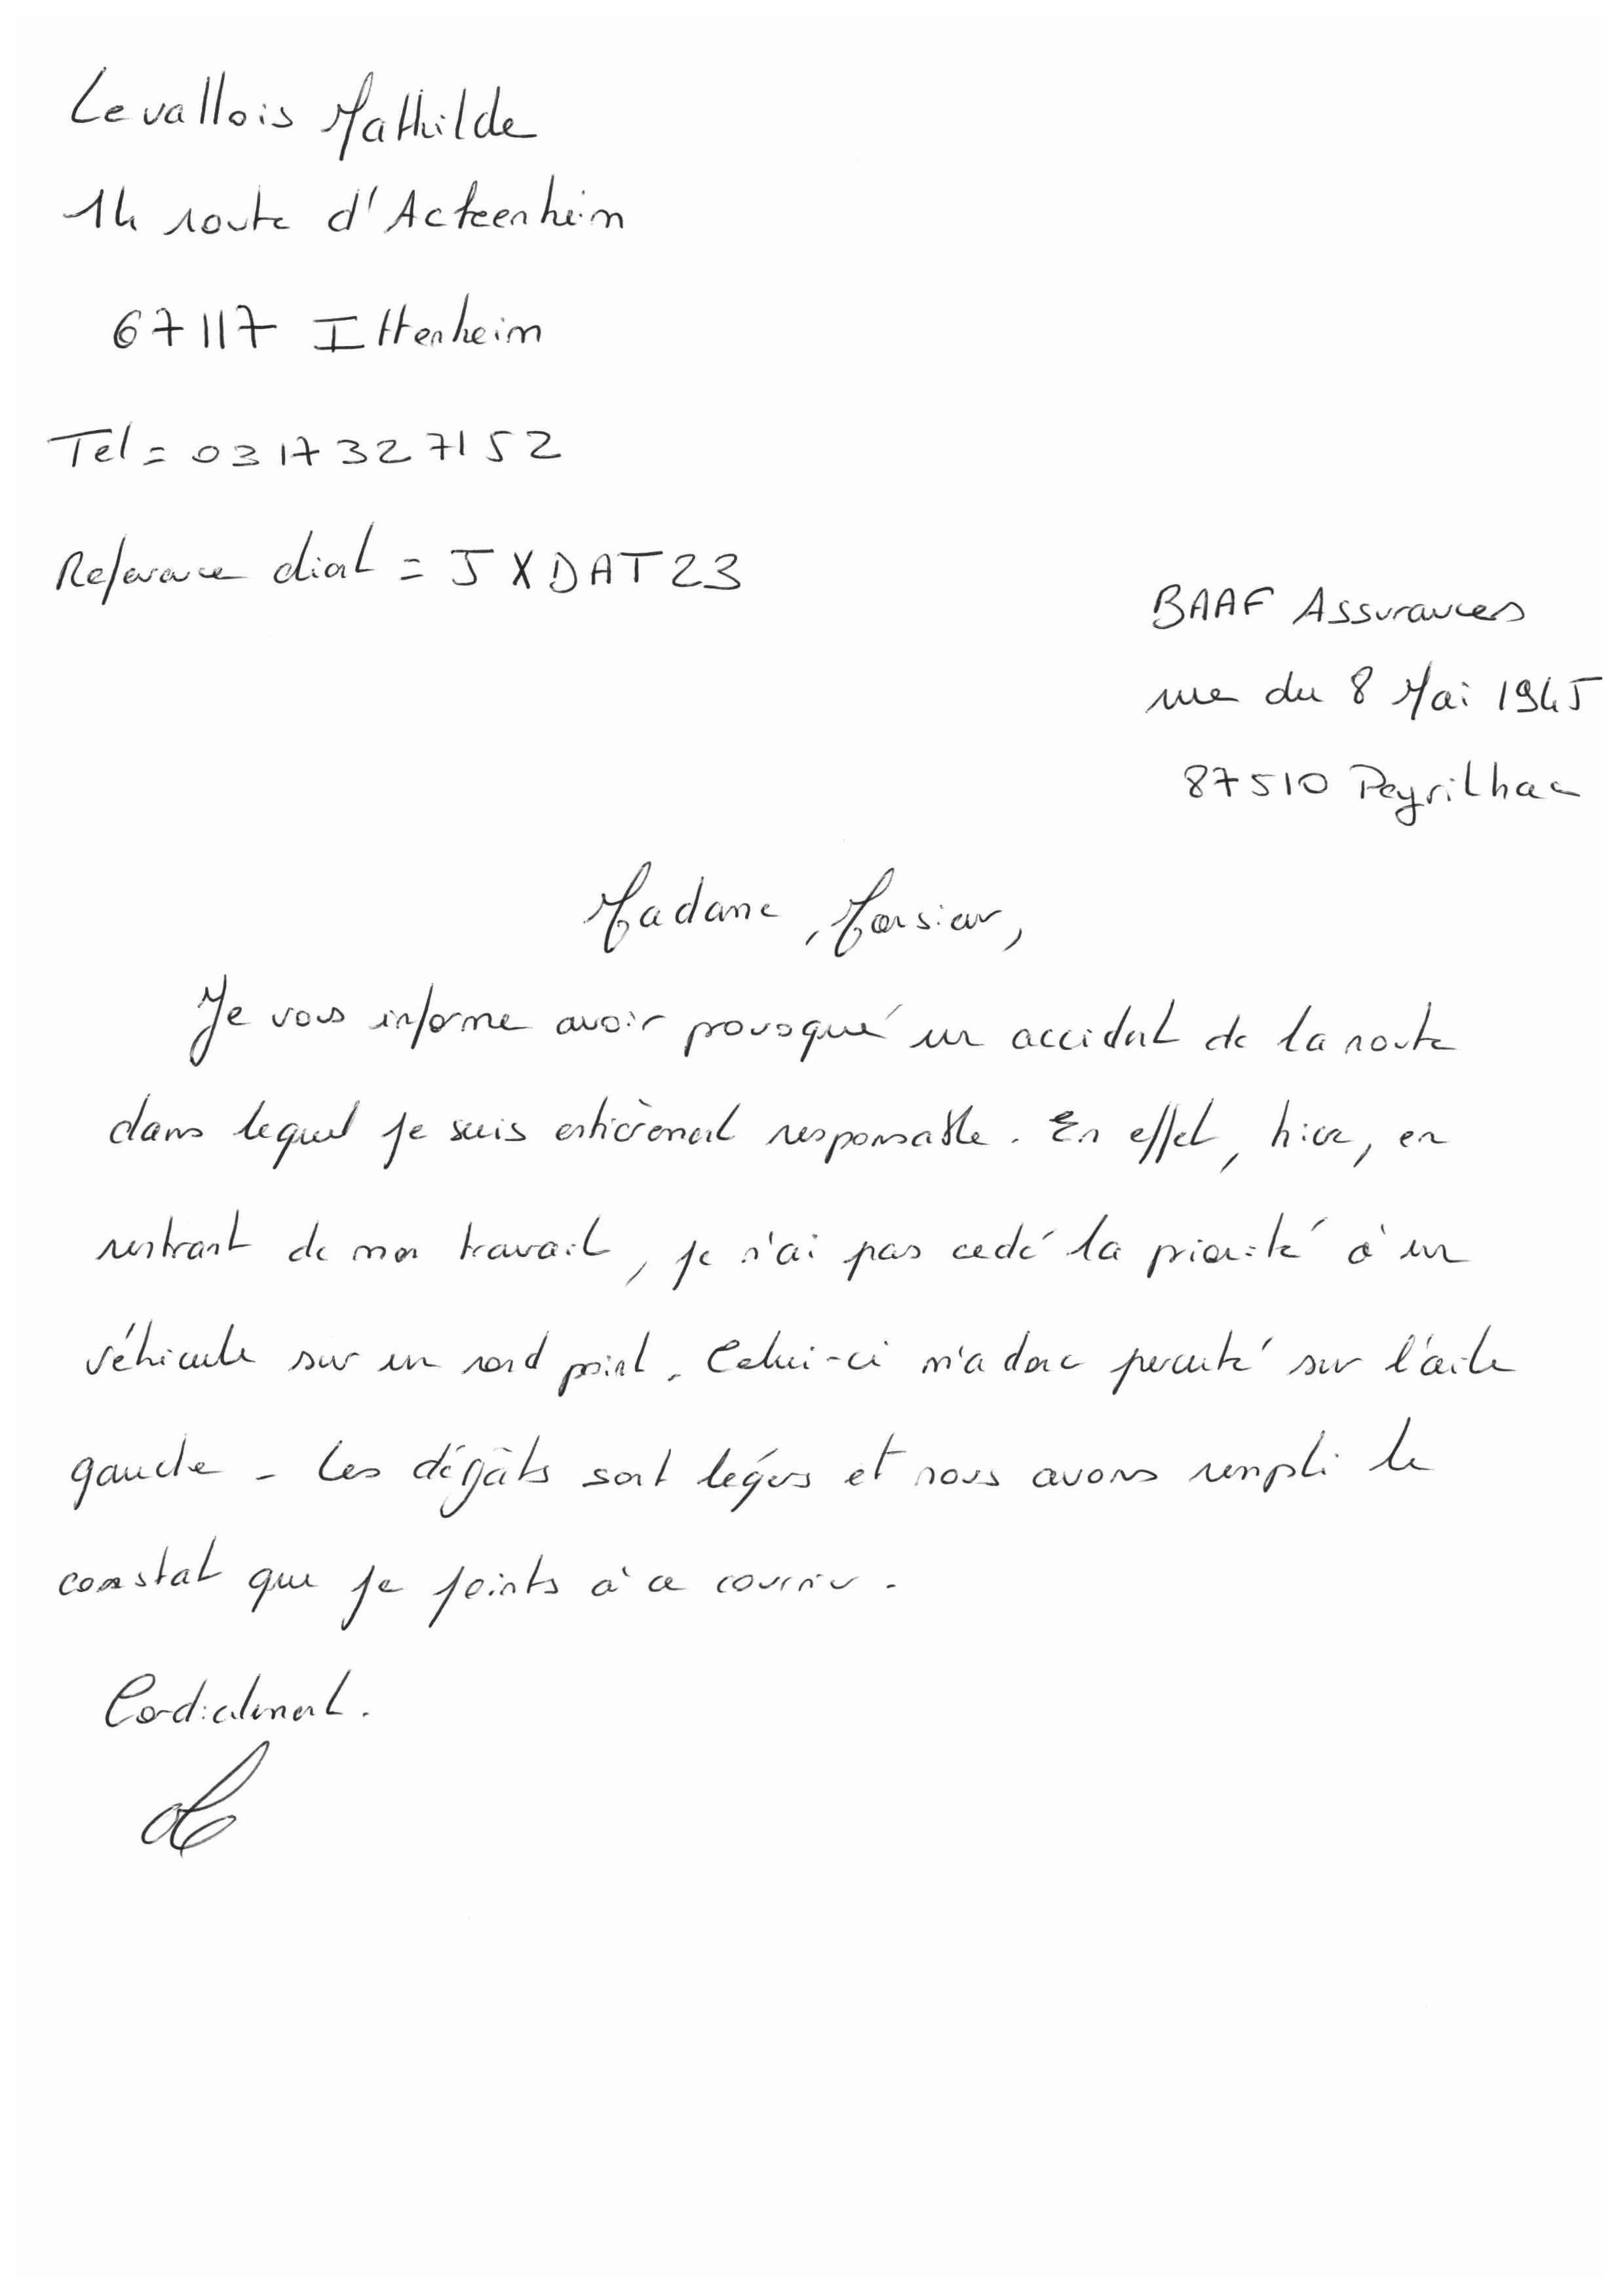 Levallois Mathilde
14 route d'Acteenheim
67117 Ittenheim
Tel = 0317327152
Reference client = JXDAT23
BAAF Assurances
rue du 8 Mai 1945
87510 Peyrilhac
Madame, Monsieur,
Je vous informe avoir provoqué un accident de la route
dans lequel je suis entièrement responsable. En effet, hier, en
rentrant de mon travail, je n'ai pas cedé la priorité à un
véhicule sur un rond point. Celui-ci m'a donc percuté sur l'aile
gauche. Les dégâts sont légers et nous avons rempli le
constat que je joints à ce courrier.
Cordialement.